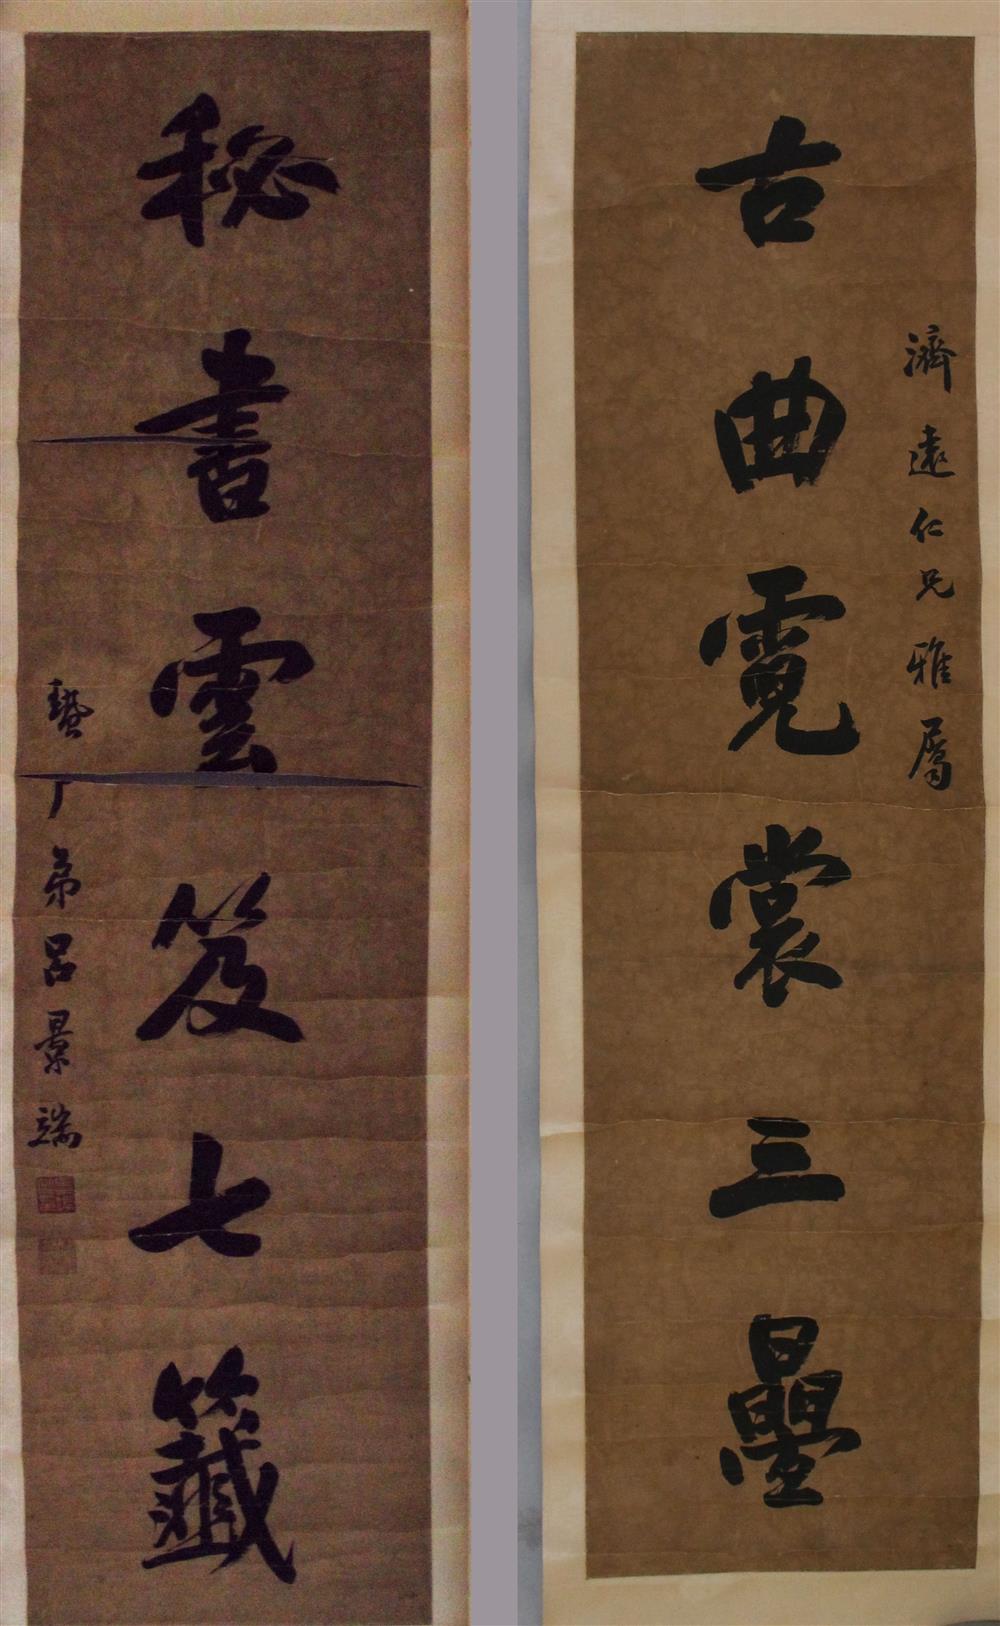 古曲霓裳三疊
濟遠仁兄雅屬
秘書雲笈七籤
蟄广弟呂景端